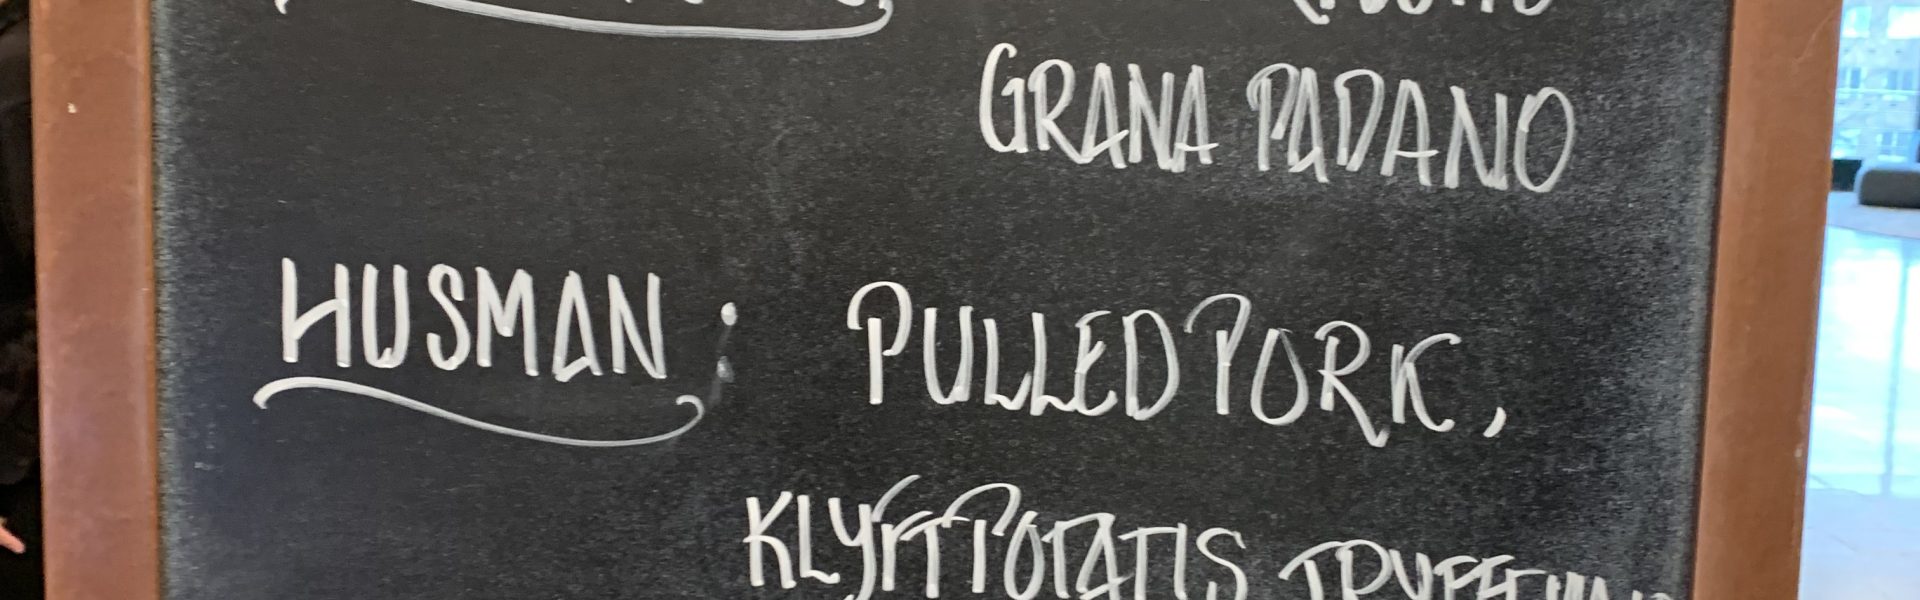 GRANA PADANO
HUSMAN: PULLED PORK,
KLYFTPOTATIS